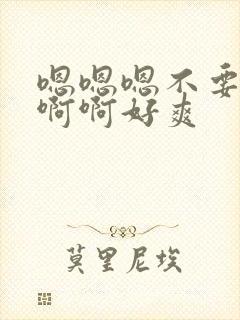 嗯嗯嗯不要
啊啊好爽
莫里尼埃